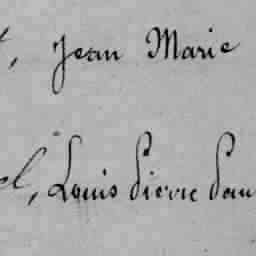 , Jean Marie
el, Louis Pierre Pau